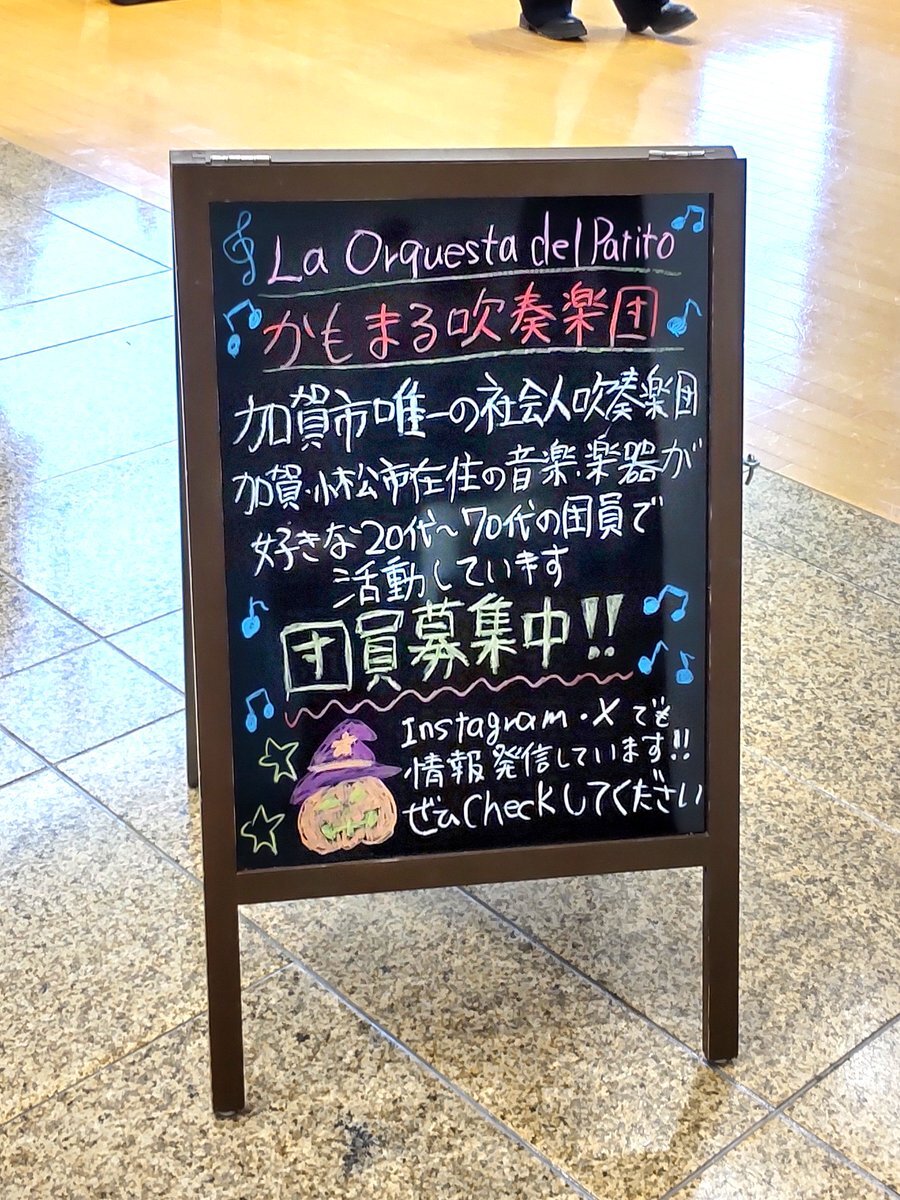 La Orquesta del Patito
かもまる吹奏楽団
加賀市唯一の社会人吹奏楽団
加賀・小松市在住の音楽・楽器が
好きな20代～70代の団員で
活動しています
団員募集中!!
Instagram・Xでも
情報発信しています!!
ぜひCheckしてください